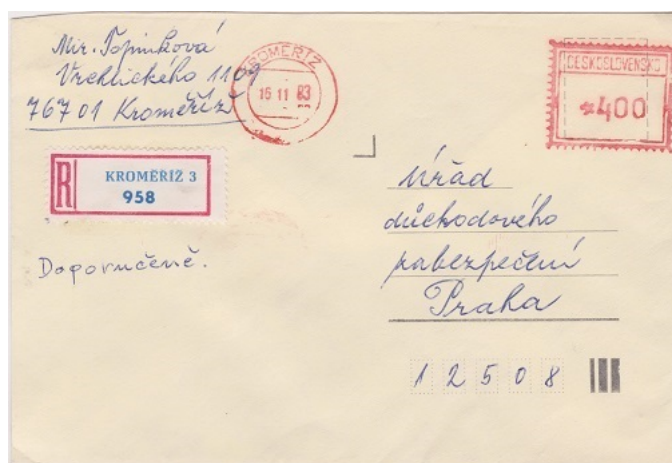 Mir. Topinková
Vrchlického 1109
76701 Kroměříž
KROMĚŘÍŽ
15 11 83
ČESKOSLOVENSKO
400
R
KROMĚŘÍŽ 3
958
Doporučeně.
Úřad
důchodového
zabezpečení
Praha
12508